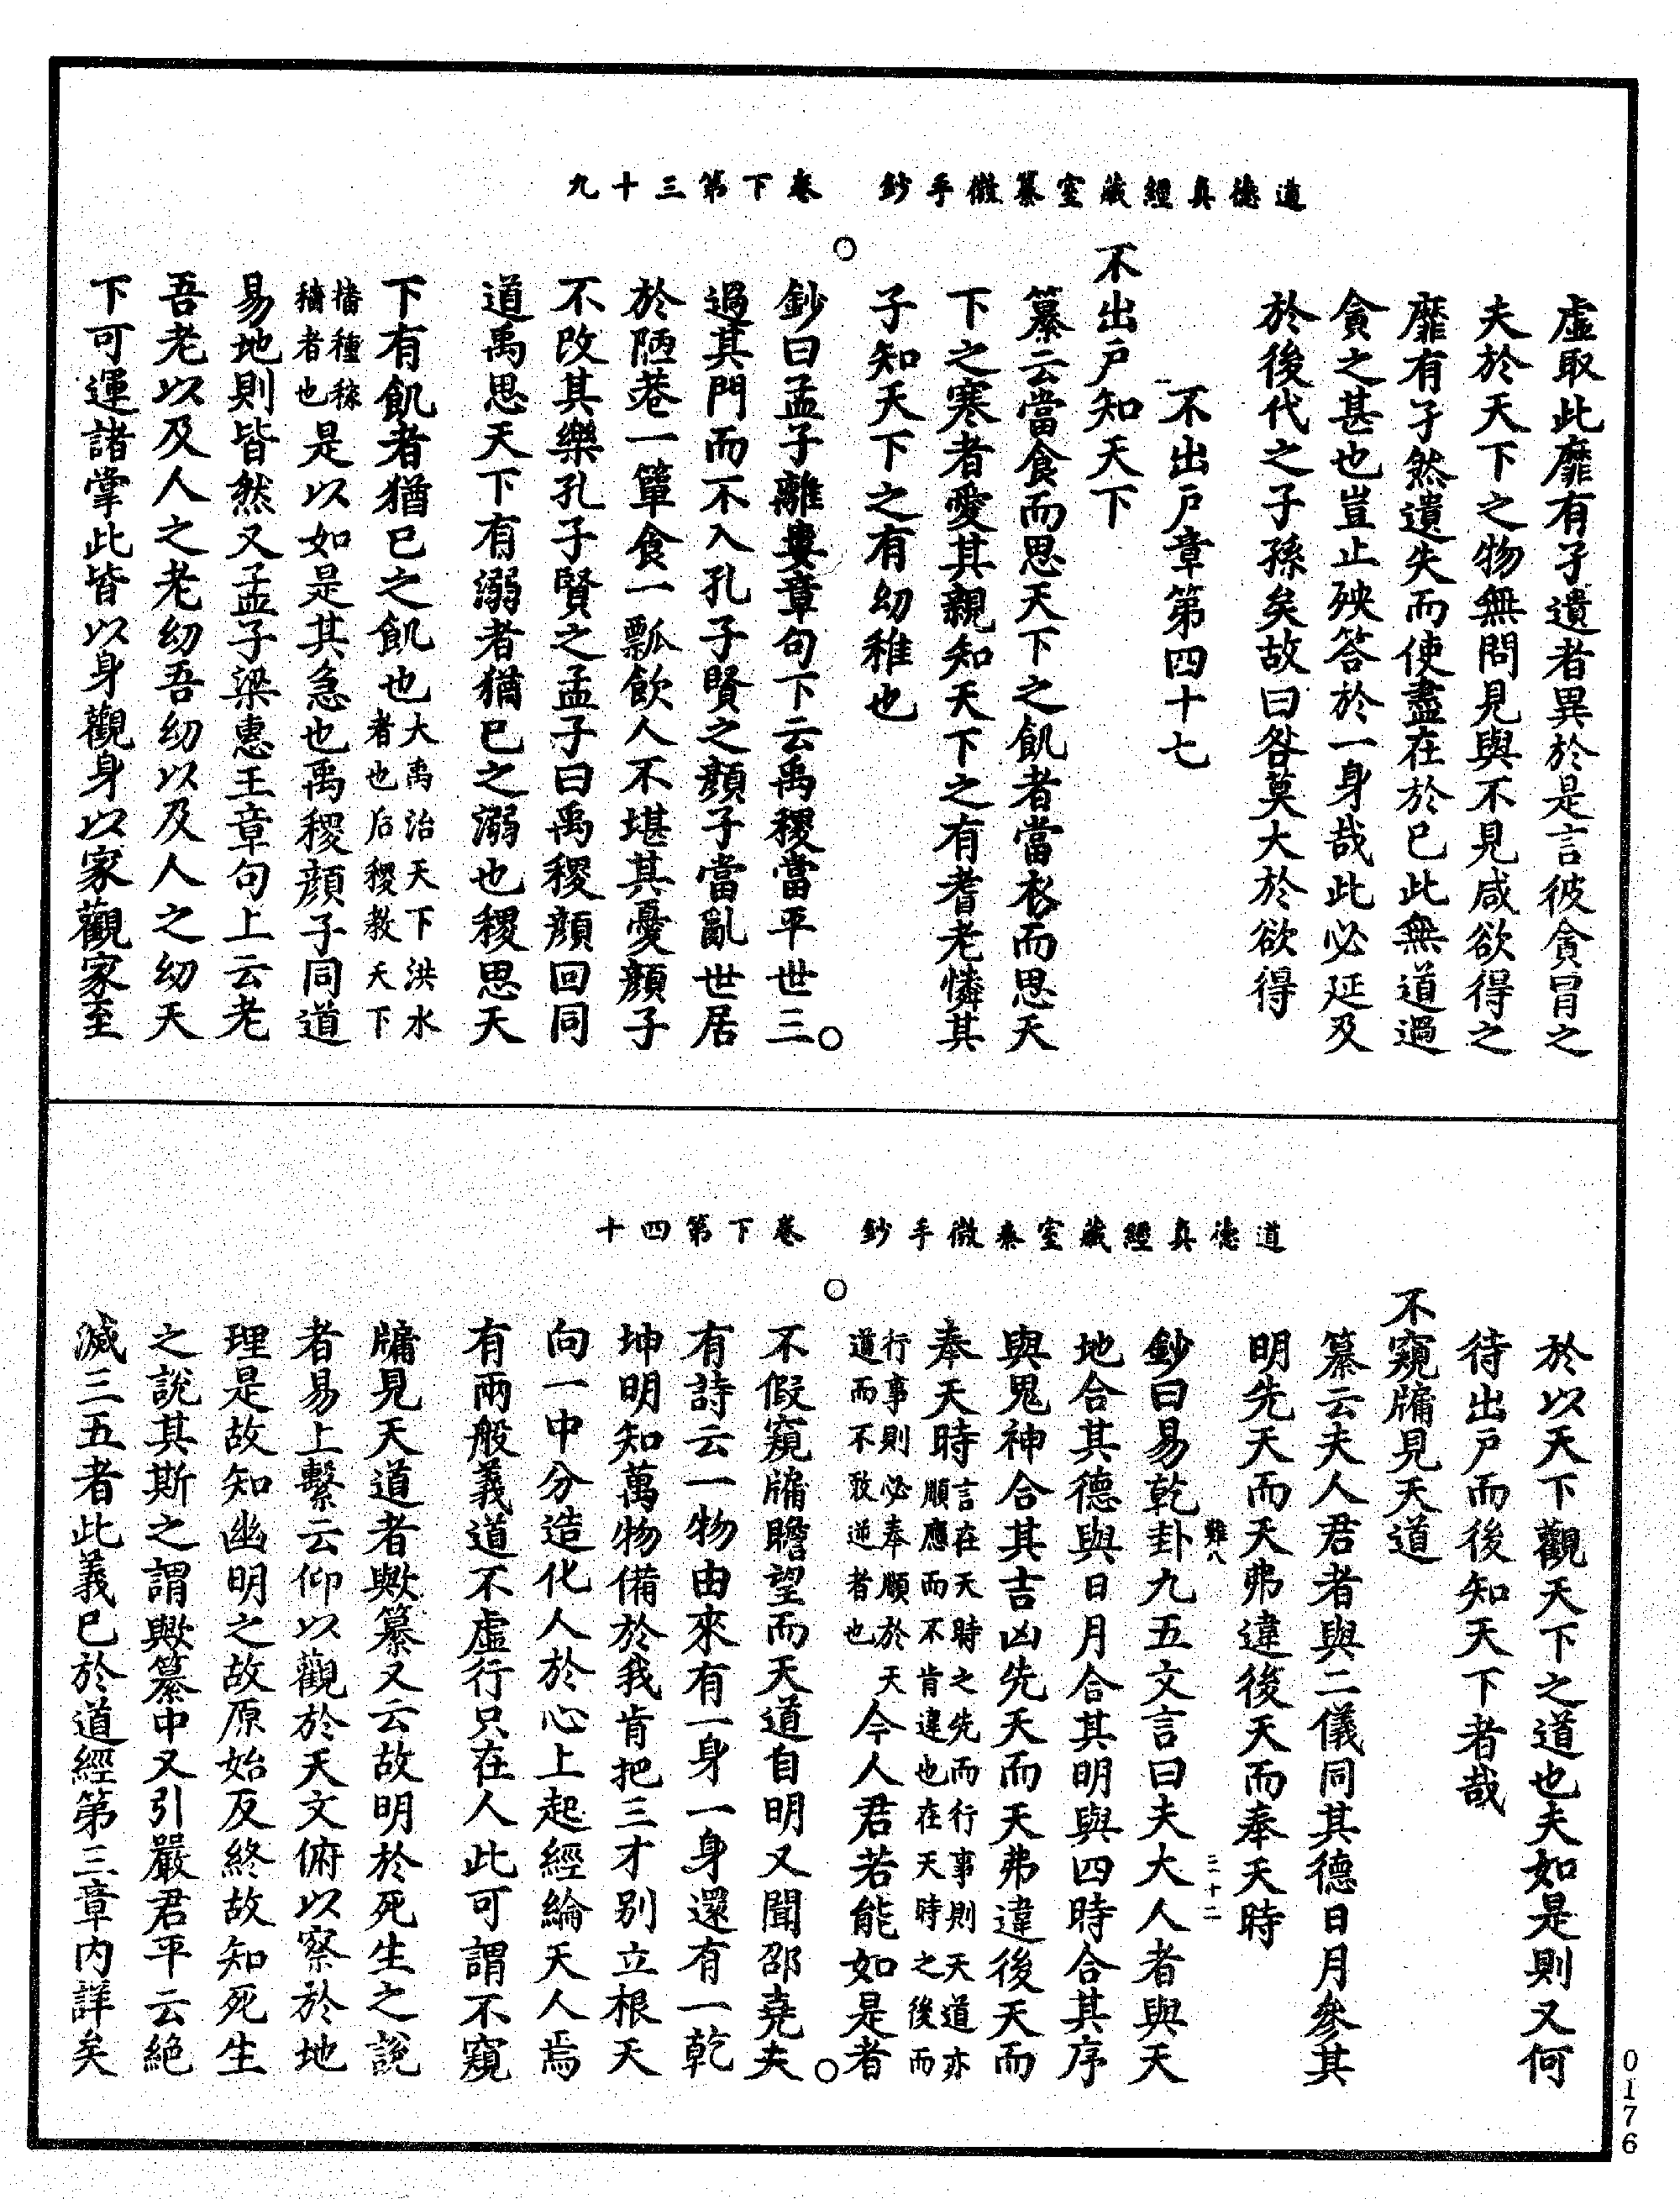 道德真經藏室纂微手鈔　卷下第三十九
虛取此靡有孑遺者異於是言彼貪冐之
夫於天下之物無問見與不見咸欲得之
靡有孑然遺失而使盡在於已此無道過
貪之甚也豈止殃咎於一身哉此必延及
於後代之子孫矣故曰咎莫大於欲得
不出戶章第四十七
不出戶知天下
纂云當食而思天下之飢者當衣而思天
下之寒者愛其親知天下之有耆老憐其
子知天下之有幼稚也
鈔曰孟子離婁章句下云禹稷當平世三
過其門而不入孔子賢之顏子當亂世居
於陋巷一簞食一瓢飲人不堪其憂顏子
不改其樂孔子賢之孟子曰禹稷顏回同
道禹思天下有溺者猶已之溺也稷思天
下有飢者猶已之飢也大禹治天下洪水者也后稷教天下
播種稼穡者也是以如是其急也禹稷顏子同道
易地則皆然又孟子梁惠王章句上云老
吾老以及人之老幼吾幼以及人之幼天
下可運諸掌此皆以身觀身以家觀家至
道德真經藏室纂微手鈔　卷下第四十
於以天下觀天下之道也夫如是則又何
待出戶而後知天下者哉
不窺牖見天道
纂云夫人君者與二儀同其德日月參其
明先天而天弗違後天而奉天時
難八　三十二
鈔曰易乾卦九五文言曰夫大人者與天
地合其德與日月合其明與四時合其序
與鬼神合其吉凶先天而天弗違後天而
奉天時言在天時之先而行事則天道亦順應而不肯違也在天時之後而
行事則必奉順於天道而不敢逆者也今人君若能如是者
不假窺牖瞻望而天道自明又聞邵堯夫
有詩云一物由來有一身一身還有一乾
坤明知萬物備於我肯把三才别立根天
向一中分造化人於心上起經綸天人焉
有兩般義道不虛行只在人此可謂不窺
牖見天道者歟纂又云故明於死生之說
者易上繫云仰以觀於天文俯以察於地
理是故知幽明之故原始反終故知死生
之說其斯之謂歟纂中又引嚴君平云絶
滅三五者此義已於道經第三章内詳矣
0176